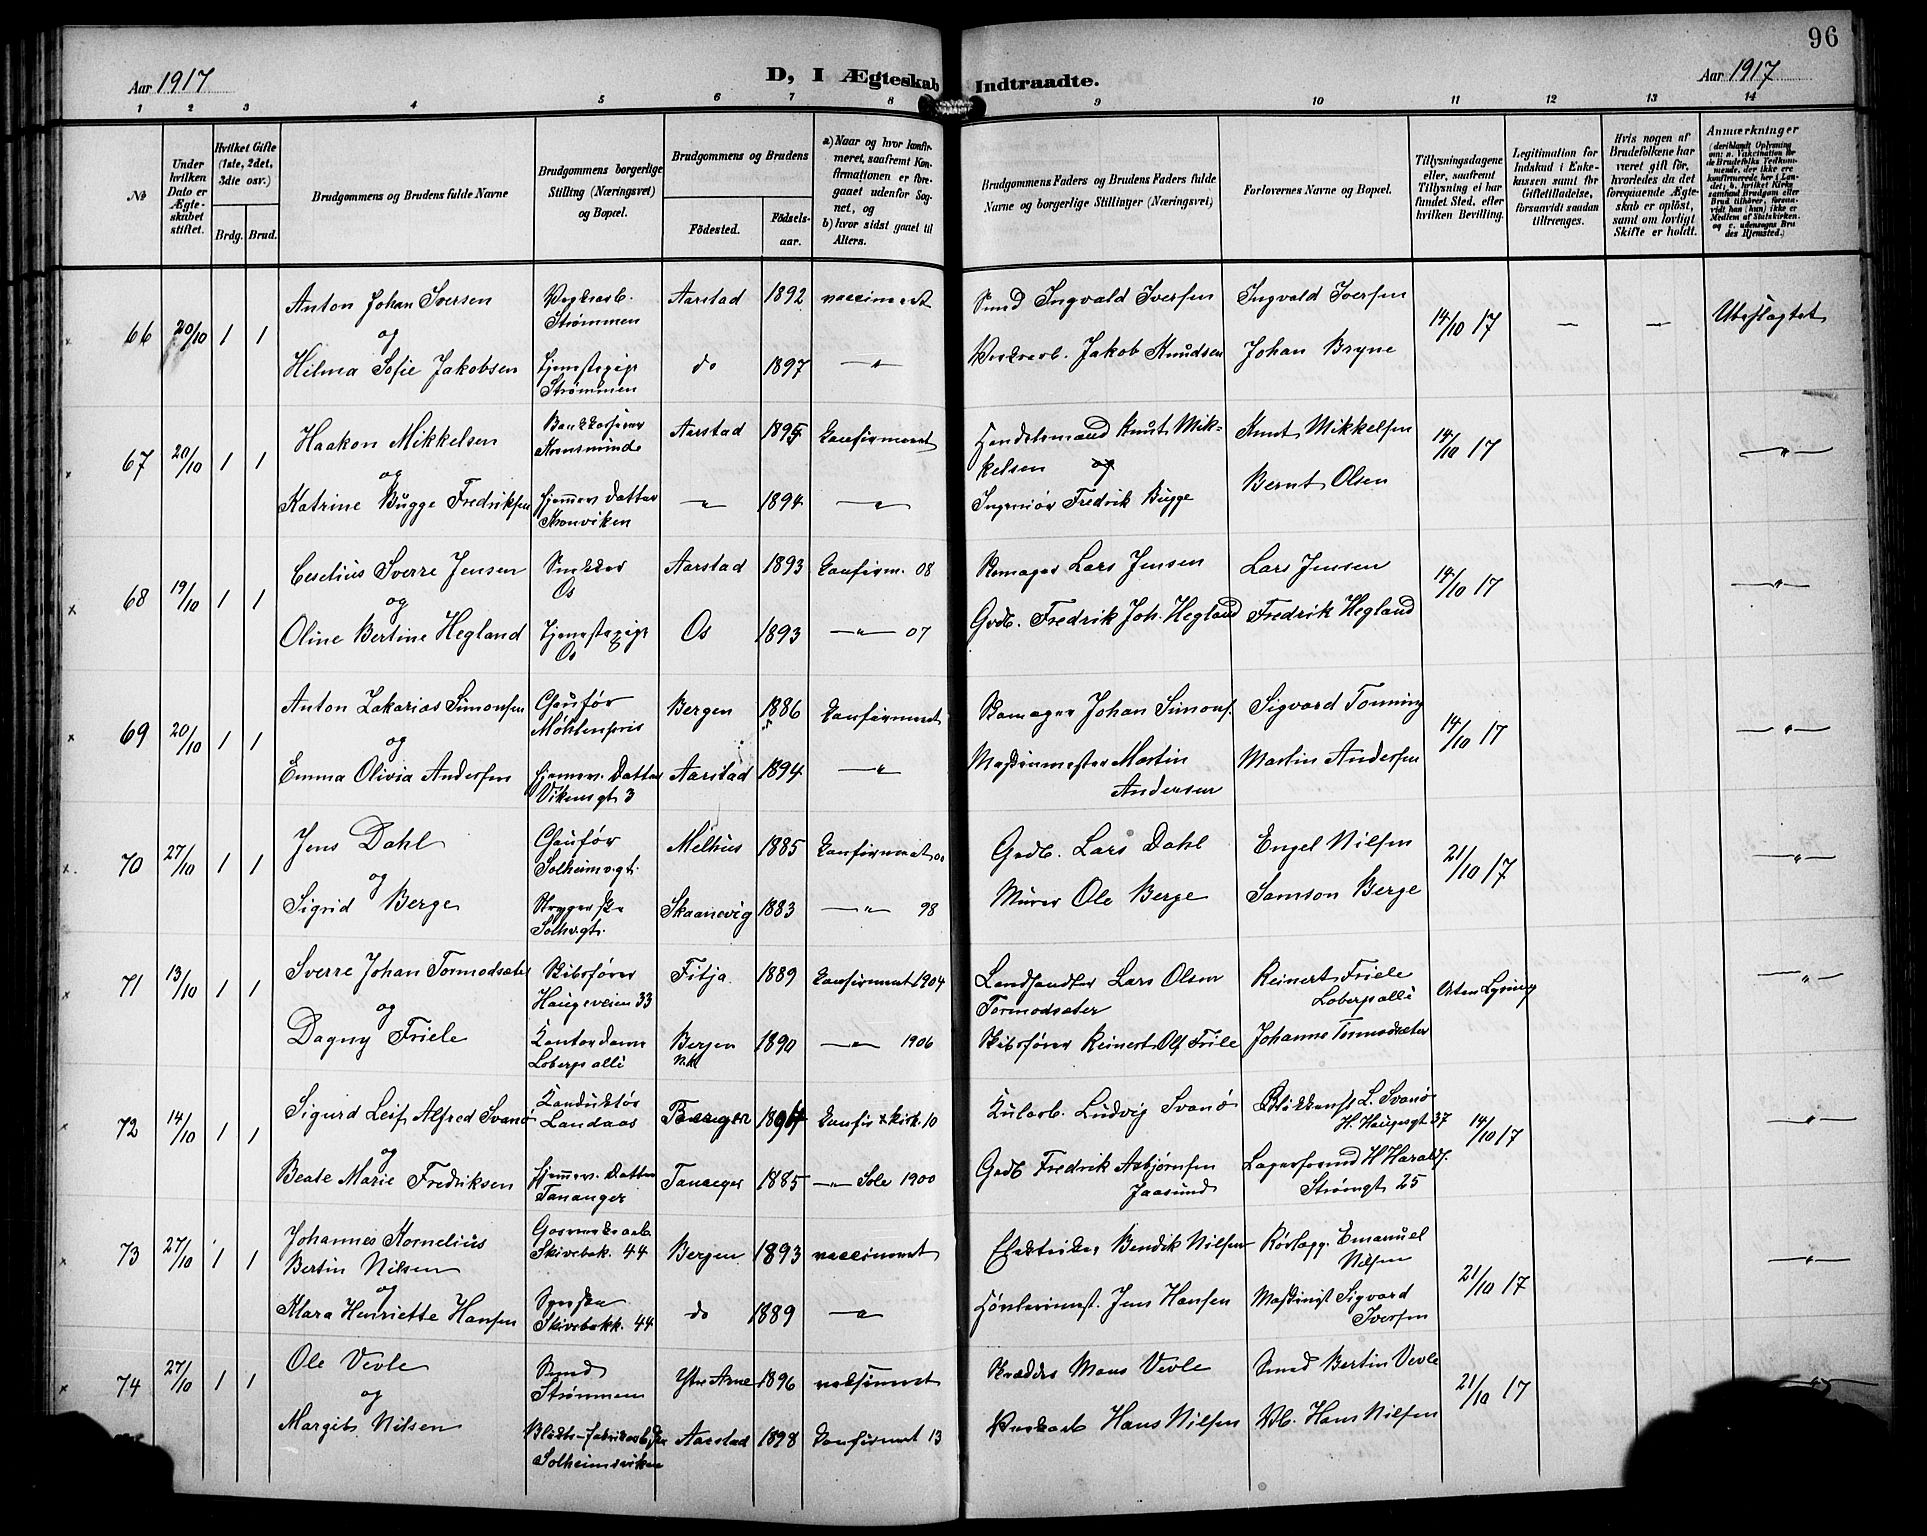 96
Aar 1917
D, I Ægteskab Indtraadte.
Aar 1917
1 2 3 4 5 6 7 8 9 10 11 12 13 14
№
Under hvilken Dato er Ægteskabet stiftet.
Hvilket Gifte (1ste, 2det, 3die osv.)
Brdg. Brud.
Brudgommens og Brudens fulde Navne
Brudgommens borgerlige Stilling (Næringsvei) og Bopæl.
Brudgommens og Brudens
Fødested. Fødselsaar.
a) Naar og hvor konfirmeret, saafremt Konfirmationen er foregaaet udenfor Sognet, og
b) hvor sidst gaaet til Alters.
Brudgommens Faders og Brudens Faders fulde Navne og borgerlige Stillinger (Næringsvei)
Forlovernes Navne og Bopæl.
Tillysningsdagene eller, saafremt Tillysning ei har fundet Sted, efter hvilken Bevilling.
Legitimation for Indskud i Enkekassen samt for Giftetilladelse, forsaavidt saadan tiltrænges.
Hvis nogen af Brudefolkene har været gift før, hvorledes da det foregaaende Ægteskab er opløst, samt om lovligt Skifte er holdt.
Anmærkninger
66 20/10 1 1 Anton Johan Iversen Strømmen Aarstad 1892 vaccineret Smed Ingvald Iversen Ingvald Iversen 14/10 17 — — Ubeslægtet
og
Hilma Sofie Jakobsen Tjenestepige Strømmen do 1897 —"— Jakob Knudsen Johan Bryne
67 20/10 1 1 Haakon Mikkelsen Aarstad 1895 konfirmeret Handelsmand Knut Mikkelsen og Knut Mikkelsen 14/10 17 —"—
og
Katrine Bugge Fredriksen Hjemmev. Datter Kronviken —"— 1894 —"— Ingeniør Fredrik Bugge Bernt Olsen
68 19/10 1 1 Ceselius Sverre Jensen Snekker Os Aarstad 1893 konfirm. 08 Lars Jensen Lars Jensen 14/10 17 —"—
og
Oline Bertine Hegland Tjenestepige Os Os 1893 —"— 07 Gdb. Fredrik Joh. Hegland Fredrik Hegland
69 20/10 1 1 Anton Zakarias Simonsen Chaufør Møhlenpris Bergen 1886 konfirmeret Johan Simons. Sigvard Tonning 14/10 17 —"—
og
Emma Olivia Andersen Hjemmev. Datter Vikensgt 3 Aarstad 1894 —"— Maskinmester Martin Andersen Martin Andersen
70 27/10 1 1 Jens Dahl Chaufør Solheimsgt. Melhus 1885 konfirmeret Gdb. Lars Dahl Engel Nilsen 21/10 17 —"—
og
Sigrid Berge Strygerske Solh.gt. Skaanevig 1883 —"— 98 Murer Ole Berge Samson Berge
71 13/10 1 1 Sverre Johan Tormodsæter Skibsfører Haugeveien 33 Fitja 1889 konfirmeret 1904 Landhandler Lars Olsen Tormodsæter Reinert Friele Lobergs alle Uten Lysning —"—
og
Dagny Friele Kontordame Lobergs alle Bergen 1890 —"— 1906 Skibsfører Reinert Olf Friele Johannes Tormodsæter
72 14/10 1 1 Sigurd Leif Alfred Svanø Konduktør Landaas Bergen 1894 10 Kularb. Ludvig Svanø L. Svanø H. Haugesgt 37 14/10 17 —"—
og
Beate Marie Fredriksen Hjemmev. Datter Tananger Tananger 1885 —"— Sole 1900 Gdb Fredrik Asbjørnsen Jaasund Lagerformd H. Harald Strømgt 25
73 27/10 1 1 Johannes Kornelius Bertin Nilsen Gasverksarb. Skivebak. 44 Bergen 1893 vaccineret Elektriker Bendik Nilsen Rørlægg. Emanuel Nilsen 21/10 17 —"—
og
Klara Henriette Hansen Syerske Skivebakk. 44 do 1889 —"— Jens Hansen Maskinist Sigvard Iversen
74 27/10 1 1 Ole Vevle Smed Strømmen Ytre Arne 1896 vaksineret Skrædder Mons Vevle Smed Bertin Vevle 21/10 17 —"—
og
Margit Nilsen Solheimsviken Aarstad 1898 konfirmert 13 Hans Nilsen Hans Nilsen